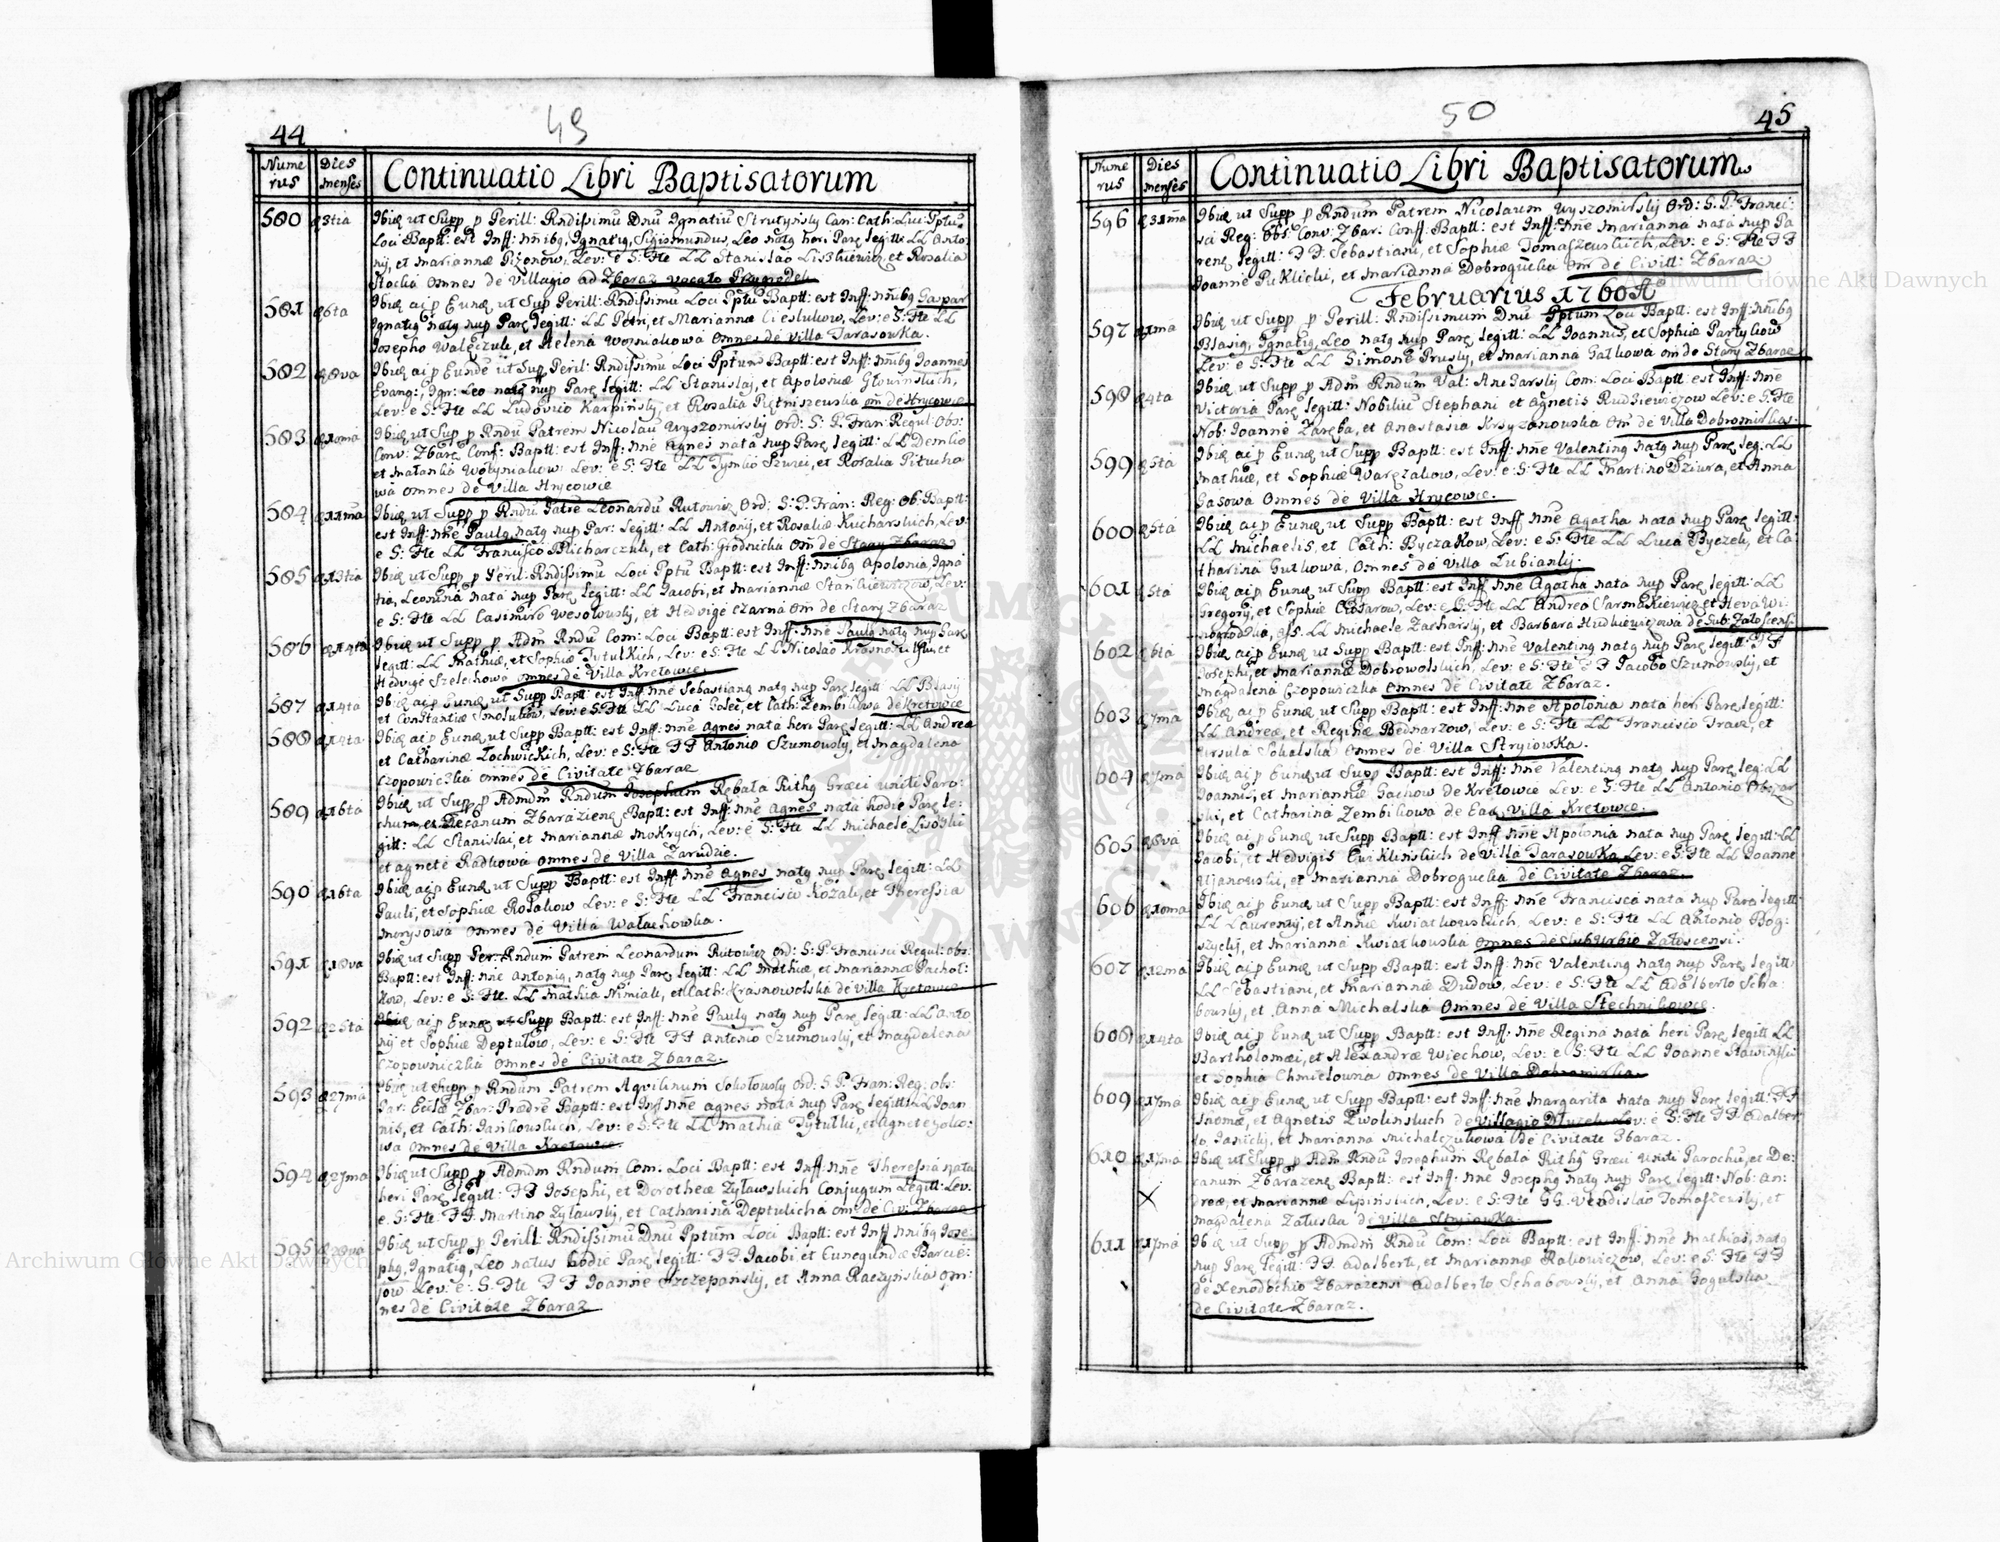 44
49
Nume
rus
Dies
menses
Continuatio Libri Baptisatorum
580
3tia
Ibidę ut Supp p Perill: Rndissimū Dnū Ignatiū Can: Cath: Luc: Pptū
Loci Baptt: est Inff: nnibq, Ignatiq, Sigismundus, Leo natq heri Parę legitt: LL Anto:
nij, et Mariannæ Pizonow, Lev: e S: Fte LL Stanislao et Rosalia
Omnes de Villagio ad Zbaraz vocato
581
6ta
Ibidę ac p Eundę ut Sup Perill: Rndissimū Loci Pptū Baptt: est Inff: nnibq Gaspar
Ignatiq natq nup Parę legitt: LL Petri, et Mariannæ Cieslukow, Lev: e S: Fte LL
Josepho et Helena Wozniakowa Omnes de Villa Tarasowka.
582
8va
Ibidę ac p Eundę ut Sup Peril: Rndissimū Loci Pptum Baptt: est Inff: nnibq Joannes
Evang:, Igr: Leo natq nup Parę legitt: LL Stanislaj, et Apoloniæ Głowinskich,
Lev: e S: Fte LL Ludovico Karpinskij, et Rosalia om de Hrycowce
583
10ma
Ibidę ut Sup p Rndū Patrem Nicolaū Wyszomirskij Ord: S: P: Fran: Regul: Obs:
Conv: Zbarę Conf: Baptt: est Inff: nne Agnes nata nup Parę legitt: LL Demko
et Matanki Wołyniakow: Lev: e S: Fte LL Tymko et Rosalia Pitucho
wa omnes de Villa Hrycowce
584
11ma
Ibidę ut Supp p Rndū Patrē Leonardū Rutowicz Ord: S: P: Fran: Reg: Ob: Baptt:
est Inff: nne Paulq natq nup Par: legitt: LL Antonij, et Rosaliæ Kucharskich, Lev:
e S: Fte LL Francisco et Cath: Grodnicka Om de Stary Zbaraz
585
13tia
Ibidę ut Supp p Peril: Rndissimū Loci Pptū Baptt: est Inff: nnibq Apolonia, Igna
tia, Leonina nata nup Parę legitt: LL Jacobi, et Mariannæ Stankiewiczow, Lev:
e S: Fte LL Casimiro Wesołowskij, et Hedvige Czarna Om de Stary Zbaraz
586
14ta
Ibidę ut Supp p Adm Rndū Com: Loci Baptt: est Inff: nne Paulq natq nup Parę
legitt: LL Mathiæ, et Sophiæ Tytulkich, Lev: e S: Fte LL Nicolao et
Hedvige Szelechowa omnes de Villa Kretowce.
587
14ta
Ibidę ac p Eundę ut Supp Baptt: est Inff: nne Sebastianq natq nup Parę legitt: LL Blasij
et Constantiæ Lev: e S: Fte LL Luca et Cath: Zembikowa de Kretowce
588
14ta
Ibidę ac p Eundę ut Supp Baptt: est Inff: nne Agnes nata heri Parę legitt: LL Andreæ
et Catharinæ Lochwickich, Lev: e S: Fte FF Antonio Szumowskij, et Magdalena
Czopowiczka omnes de Civitate Zbaraz
589
16ta
Ibidę ut Supp p Admdm Rndum Josephum Rębała Rithq Græci uniti Paro:
chum, et Decanum Zbarazienę Baptt: est Inff: nne Agnes nata hodie Parę le:
gitt: LL Stanislai, et Mariannæ Mokrych, Lev: e S: Fte LL Michaele
et Agnete Radkowa omnes de Villa Zarudzie.
590
16ta
Ibidę ac p Eundę ut Supp Baptt: est Inff: nne Agnes natq nup Parę legitt: LL
Pauli, et Sophiæ Lev: e S: Fte LL Francisco et Theressia
omnes de Villa Wałachowka.
591
18va
Ibidę ut Supp Per Rndum Patrem Leonardum Rutowicz Ord: S: P: Francisci Regul: Obs:
Baptt: est Inff: nne Antoniq, natq nup Parę legitt: LL Mathiæ, et Mariannæ Pachoł:
kow, Lev: e S: Fte LL Mathia et Cath: Krasnowolska de Villa Kretowce
592
25ta
Ibidę ac p Eundę ut Supp Baptt: est Inff: nne Paulq natq nup Parę legitt: LL Anto
nij et Sophiæ Deptułow, Lev: e S: Fte FF Antonio Szumowskij, et Magdalena
Czopowniczka omnes de Civitate Zbaraz.
593
27ma
Ibidę ut Supp p Rndum Patrem Aqvilinum Sokołowskij Ord: S: P: Fran: Reg: Obs:
Par: Ecclæ Zbar: Baptt: est Inff: nne Agnes nata nup Parę legitt: LL Joan
nis, et Cath: Jankowskich, Lev: e S: Fte LL Mathia Tytułki, et Agnete
wa omnes de Villa Kretowce.
594
27ma
Ibidę ut Supp p Admdm Rndum Com: Loci Baptt: est Inff: nne Theressia nata
heri Parę legitt: FF Josephi, et Dorotheæ Zyławskich Conjugum Legitt: Lev:
e S: Fte FF Martino Zyławskij, et Catharina Deptulicha om: de Civi Zbaraz
595
28va
Ibidę ut Sup p Perill: Rndissimū Dnū Pptum Loci Baptt: est Inff: nnibq Jose:
phq, Ignatiq, Leo natus hodie Parę legitt: FF Jacobi et Cunegundæ Barcie:
jow Lev: e S: Fte FF Joanne Szczepanskij, et Anna Raczynska om:
nes de Civitate Zbaraz
50
45
Nume
rus
Dies
menses
Continuatio Libri Baptisatorum
596
31ma
Ibidę ut Supp p Rndum Patrem Nicolaum Wyszomirskij Ord: S: P: Franci:
sci Reg: Obs: Conv: Zbar: Conf: Baptt: est Inff: nne Marianna nata nup Pa
renę legitt: FF Sebastiani, et Sophiæ Tomaszewskich, Lev: e S: Fte FF
Joanne Puklicki, et Marianna Dobrogucka Om de Civitt: Zbaraz
Februarius 1760 A
597
1ma
Ibidę ut Supp p Perill: Rndissimum Dnū Pptum Loci Baptt: est Inff: nnibq
Blasiq, Ignatiq, Leo natq nup Parę legitt: LL Joannis, et Sophiæ Partykow
Lev: e S: Fte LL Simone Pruskij, et Marianna Gałkowa om de Stary Zbaraz
598
4ta
Ibidę ut Supp p Adm Rndum Val: Com: Loci Baptt: est Inff: nne
Victoria Parę legitt: Nobiliū Stephani et Agnetis Rudziewiczow Lev: e S: Fte
Nob: Joanne Zaręba, et Anastasia Krzyzanowska Om de Villa Dobromirka:
599
5ta
Ibidę ac p Eundę ut Supp Baptt: est Inff: nne Valentinq natq nup Parę leg: LL
Mathiæ, et Sophiæ Lev: e S: Fte LL Martino Dziura, et Anna
Gasowa Omnes de Villa Hrycowce.
600
5ta
Ibidę ac p Eundę ut Supp Baptt: est Inff: nne Agatha nata nup Parę legitt:
LL Michaelis, et Cath: Byczakow, Lev: e S: Fte LL Luca Byczek, et Ca
tharina Gutkowa, omnes de Villa Lubianki.
601
5ta
Ibidę ac p Eundę ut Supp Baptt: est Inff: nne Agatha nata nup Parę legitt: LL
Gregorij, et Sophiæ Lev: e S: Fte LL Andrea Sarmakiewicz et Heva Wi
nogrodka, ass. LL Michaele Zacharskij, et Barbara Hudkiewiczowa de Sub: Załoscens:
602
6ta
Ibidę ac p Eundę ut Supp Baptt: est Inff: nne Valentinq natq nup Parę legitt: FF
Josephi, et Mariannæ Dobrowolskich, Lev: e S: Fte FF Jacobo Szumowskij, et
Magdalena Czopowiczka omnes de Civitate Zbaraz.
603
7ma
Ibidę ac p Eundę ut Supp Baptt: est Inff: nne Apolonia nata heri Parę legitt:
LL Andreæ, et Reginæ Bednarzow, Lev: e S: Fte LL Francisco Tracz, et
Ursula Sokalska omnes de Villa Stryiowka.
604
7ma
Ibidę ac p Eundę ut Supp Baptt: est Inff: nne Valentinq natq nup Parę leg: LL
Joannis, et Mariannæ Gachow de Kretowce Lev: e S: Fte LL Antonio
ski, et Catharina Zembikowa de Eadę Villa Kretowce.
605
8va
Ibidę ac p Eundę ut Supp Baptt: est Inff: nne Apolonia nata nup Parę legitt: LL
Jacobi, et Hedvigis Cwiklinskich de Villa Tarasowka Lev: e S: Fte LL Joanne
Ujanowski, et Marianna Dobrogucka de Civitate Zbaraz.
606
10ma
Ibidę ac p Eundę ut Supp Baptt: est Inff: nne Francisca nata nup Parę legitt:
LL Laurentij, et Annæ Kwiatkowskich, Lev: e S: Fte LL Antonio Bog:
szyckij, et Marianna Kwiatkowska omnes de Suburbio Załoscensi.
607
12ma
Ibidę ac p Eundę ut Supp Baptt: est Inff: nne Valentinq natq nup Parę legitt
LL Sebastiani, et Mariannæ Dudow, Lev: e S: Fte LL Adalberto Scha:
bowskij, et Anna Michalska Omnes de Villa Stechnikowce.
608
14ta
Ibidę ac p Eundę ut Supp Baptt: est Inff: nne Regina nata heri Parę legitt LL
Bartholomæi, et Alexandræ Wiechow, Lev: e S: Fte LL Joanne Sławinskij
et Sophia Chmielowna omnes de Villa Dobromirka.
609
17ma
Ibidę ac p Eundę ut Supp Baptt: est Inff: nne Margarita nata nup Parę legitt: FF
Thomæ, et Agnetis Zwolinskich de Villagio Lev: e S: Fte FF Adalber
to Janickij, et Marianna Michalczukowa de Civitate Zbaraz.
610
17ma
Ibidę ut Supp p Adm Rndū Josephum Rębała Rithq Græci Uniti Parochū, et De:
canum Zbarazenę Baptt: est Inff: nne Josephq natq nup Parę legitt: Nob: An:
dreæ, et Mariannæ Lipinskich, Lev: e S: Fte GG. Vendislao Tomaszewskij, et
Magdalena Załuska de Villa Stryiowka.
611
17ma
Ibidę ut Supp p Admdm Rndū Com: Loci Baptt: est Inff: nne Mathias, natq
nup Parę legitt: FF Adalberti, et Mariannæ Rakowiczow, Lev: e S: Fte FF
de Xenodochio Zbarazensi Adalberto Schabowskij, et Anna Gogulska
de Civitate Zbaraz.
Archiwum Główne Akt Dawnych
Archiwum Główne Akt Dawnych